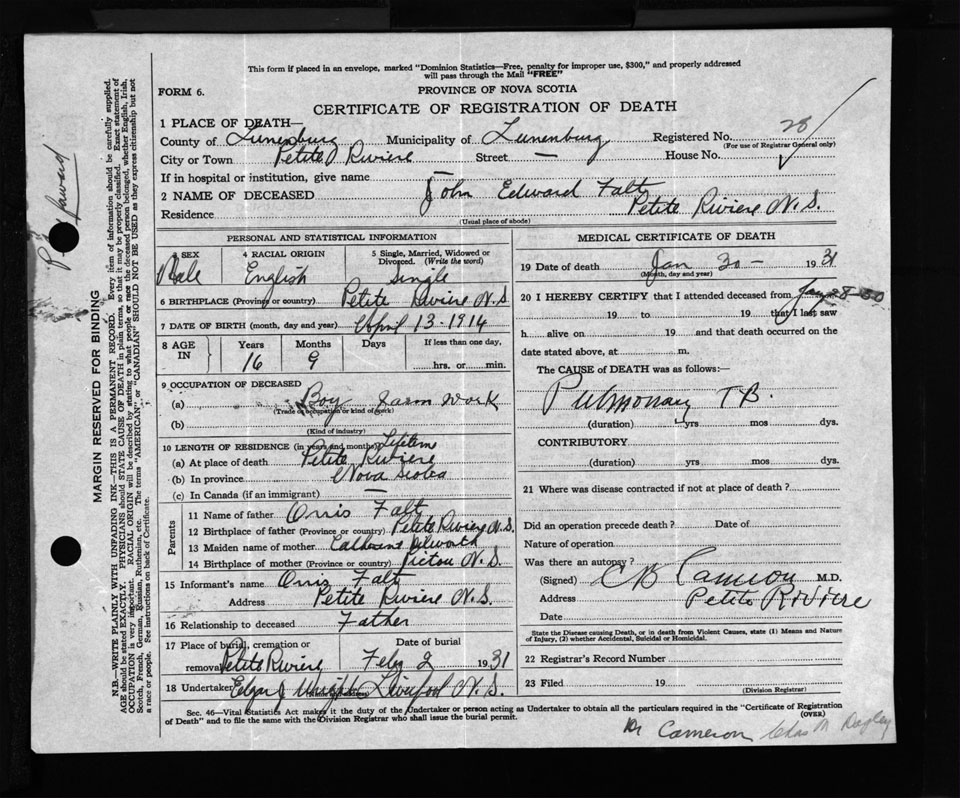 This form if placed in an envelope, marked "Dominion Statistics—Free, penalty for improper use, $300," and properly addressed
will pass through the Mail "FREE"
FORM 6.
PROVINCE OF NOVA SCOTIA
CERTIFICATE OF REGISTRATION OF DEATH
1 PLACE OF DEATH—
County of Lunenburg Municipality of Lunenburg Registered No. 28
(For use of Registrar General only)
City or Town Petite Riviere Street — House No.
If in hospital or institution, give name
2 NAME OF DECEASED John Edward Falt
Residence Petite Riviere N.S.
(Usual place of abode)
PERSONAL AND STATISTICAL INFORMATION
3 SEX 4 RACIAL ORIGIN 5 Single, Married, Widowed or
Divorced. (Write the word)
English Single
6 BIRTHPLACE (Province or country) Petite Riviere N.S
7 DATE OF BIRTH (month, day and year) April 13-1914
8 AGE IN Years Months Days If less than one day,
16 9 hrs. or min.
9 OCCUPATION OF DECEASED
(a) Boy farm work
(Trade or occupation or kind of work)
(b)
(Kind of industry)
10 LENGTH OF RESIDENCE (in years and months) Lifetime
(a) At place of death Petite Riviere
(b) In province Nova Scotia
(c) In Canada (if an immigrant) —
Parents
11 Name of father Orris Falt
12 Birthplace of father (Province or country) Petite Riviere N.S.
13 Maiden name of mother Catherine
14 Birthplace of mother (Province or country) Pictou N.S.
15 Informant's name Orris Falt
Address Petite Riviere N.S.
16 Relationship to deceased Father
17 Place of burial, cremation or Date of burial
removal Petite Riviere Feby 2 1931
18 Undertaker Edgar J Wright Liverpool N.S.
MEDICAL CERTIFICATE OF DEATH
19 Date of death Jan 30 - 1931
(Month, day and year)
20 I HEREBY CERTIFY that I attended deceased from Jan 28-30
19 to 19 that I last saw
h alive on 19 and that death occurred on the
date stated above, at m.
The CAUSE of DEATH was as follows:—
Pulmonary TB.
(duration) yrs mos dys.
CONTRIBUTORY
(duration) yrs mos dys.
21 Where was disease contracted if not at place of death?
Did an operation precede death? Date of
Nature of operation
Was there an autopsy?
(Signed) CB Cameron M.D.
Address Petite Riviere
Date
State the Disease causing Death, or in death from Violent Causes, state (1) Means and Nature
of Injury, (2) whether Accidental, Suicidal or Homicidal.
22 Registrar's Record Number
23 Filed 19
(Division Registrar)
Sec. 46—Vital Statistics Act makes it the duty of the Undertaker or person acting as Undertaker to obtain all the particulars required in the "Certificate of Registration
of Death" and to file the same with the Division Registrar who shall issue the burial permit.
(OVER)
Dr Cameron Chas M Dagley
MARGIN RESERVED FOR BINDING
N.B.—WRITE PLAINLY WITH UNFADING INK—THIS IS A PERMANENT RECORD. Every item of information should be carefully supplied.
AGE should be stated EXACTLY. PHYSICIANS should STATE CAUSE OF DEATH in plain terms, so that it may be properly classified. Exact statement of
OCCUPATION is very important. RACIAL ORIGIN will be described by stating to what people or race the deceased person belonged, whether English, Irish,
Scotch, French, German, Russian, Ruthenian, etc. The terms "AMERICAN" or "CANADIAN" SHOULD NOT BE USED as they express citizenship but not
a race or people. See instructions on back of Certificate.